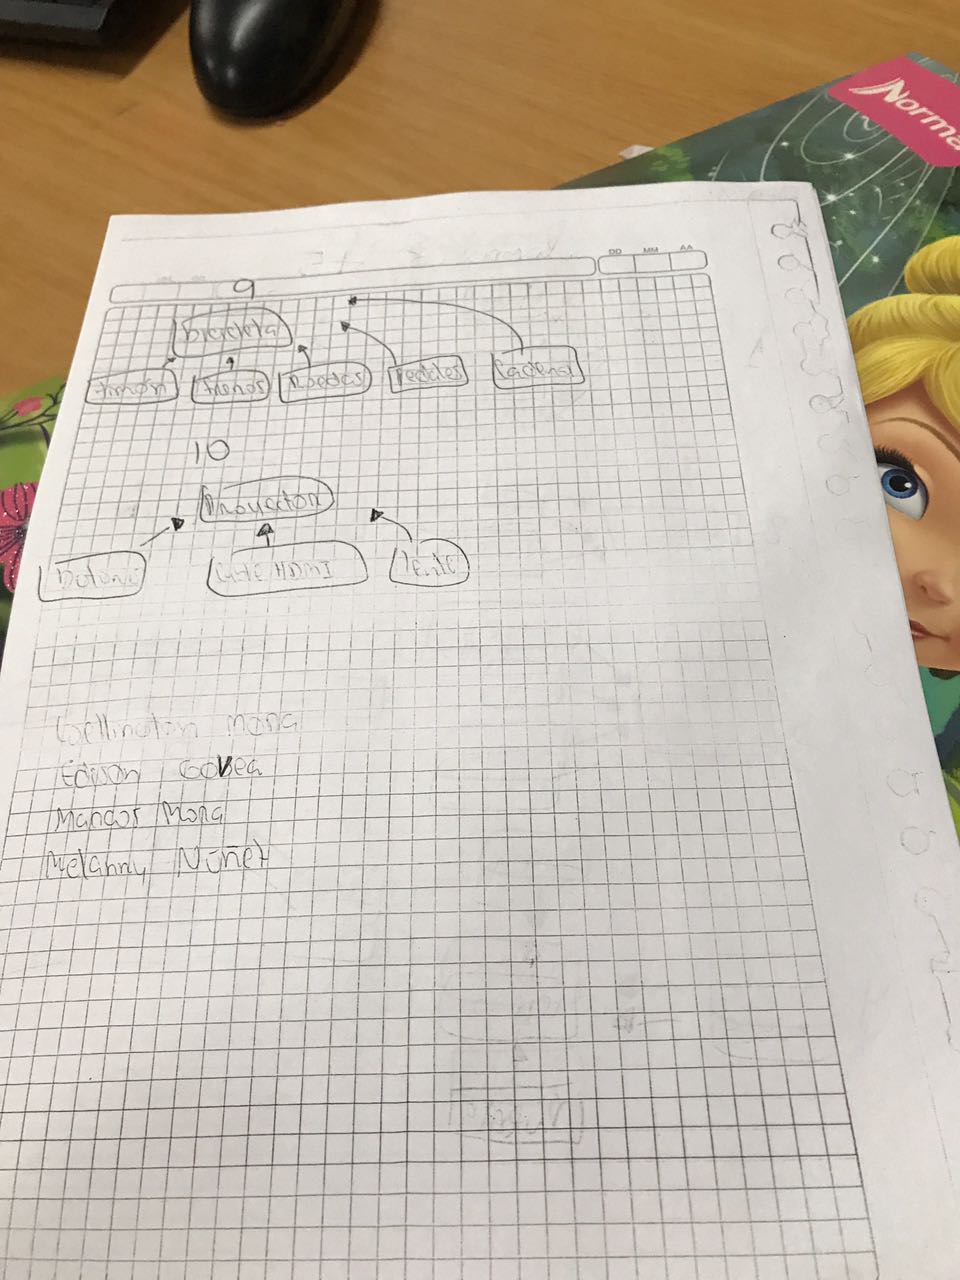 Norma
DD MM AA
9
Bicicleta
timon frenos Ruedas Pedales Cadena
10
Proyector
Botones Cable HDMI Lente
Wellington Mora
Edison Govea
Marcos Mora
Melanny Nuñez